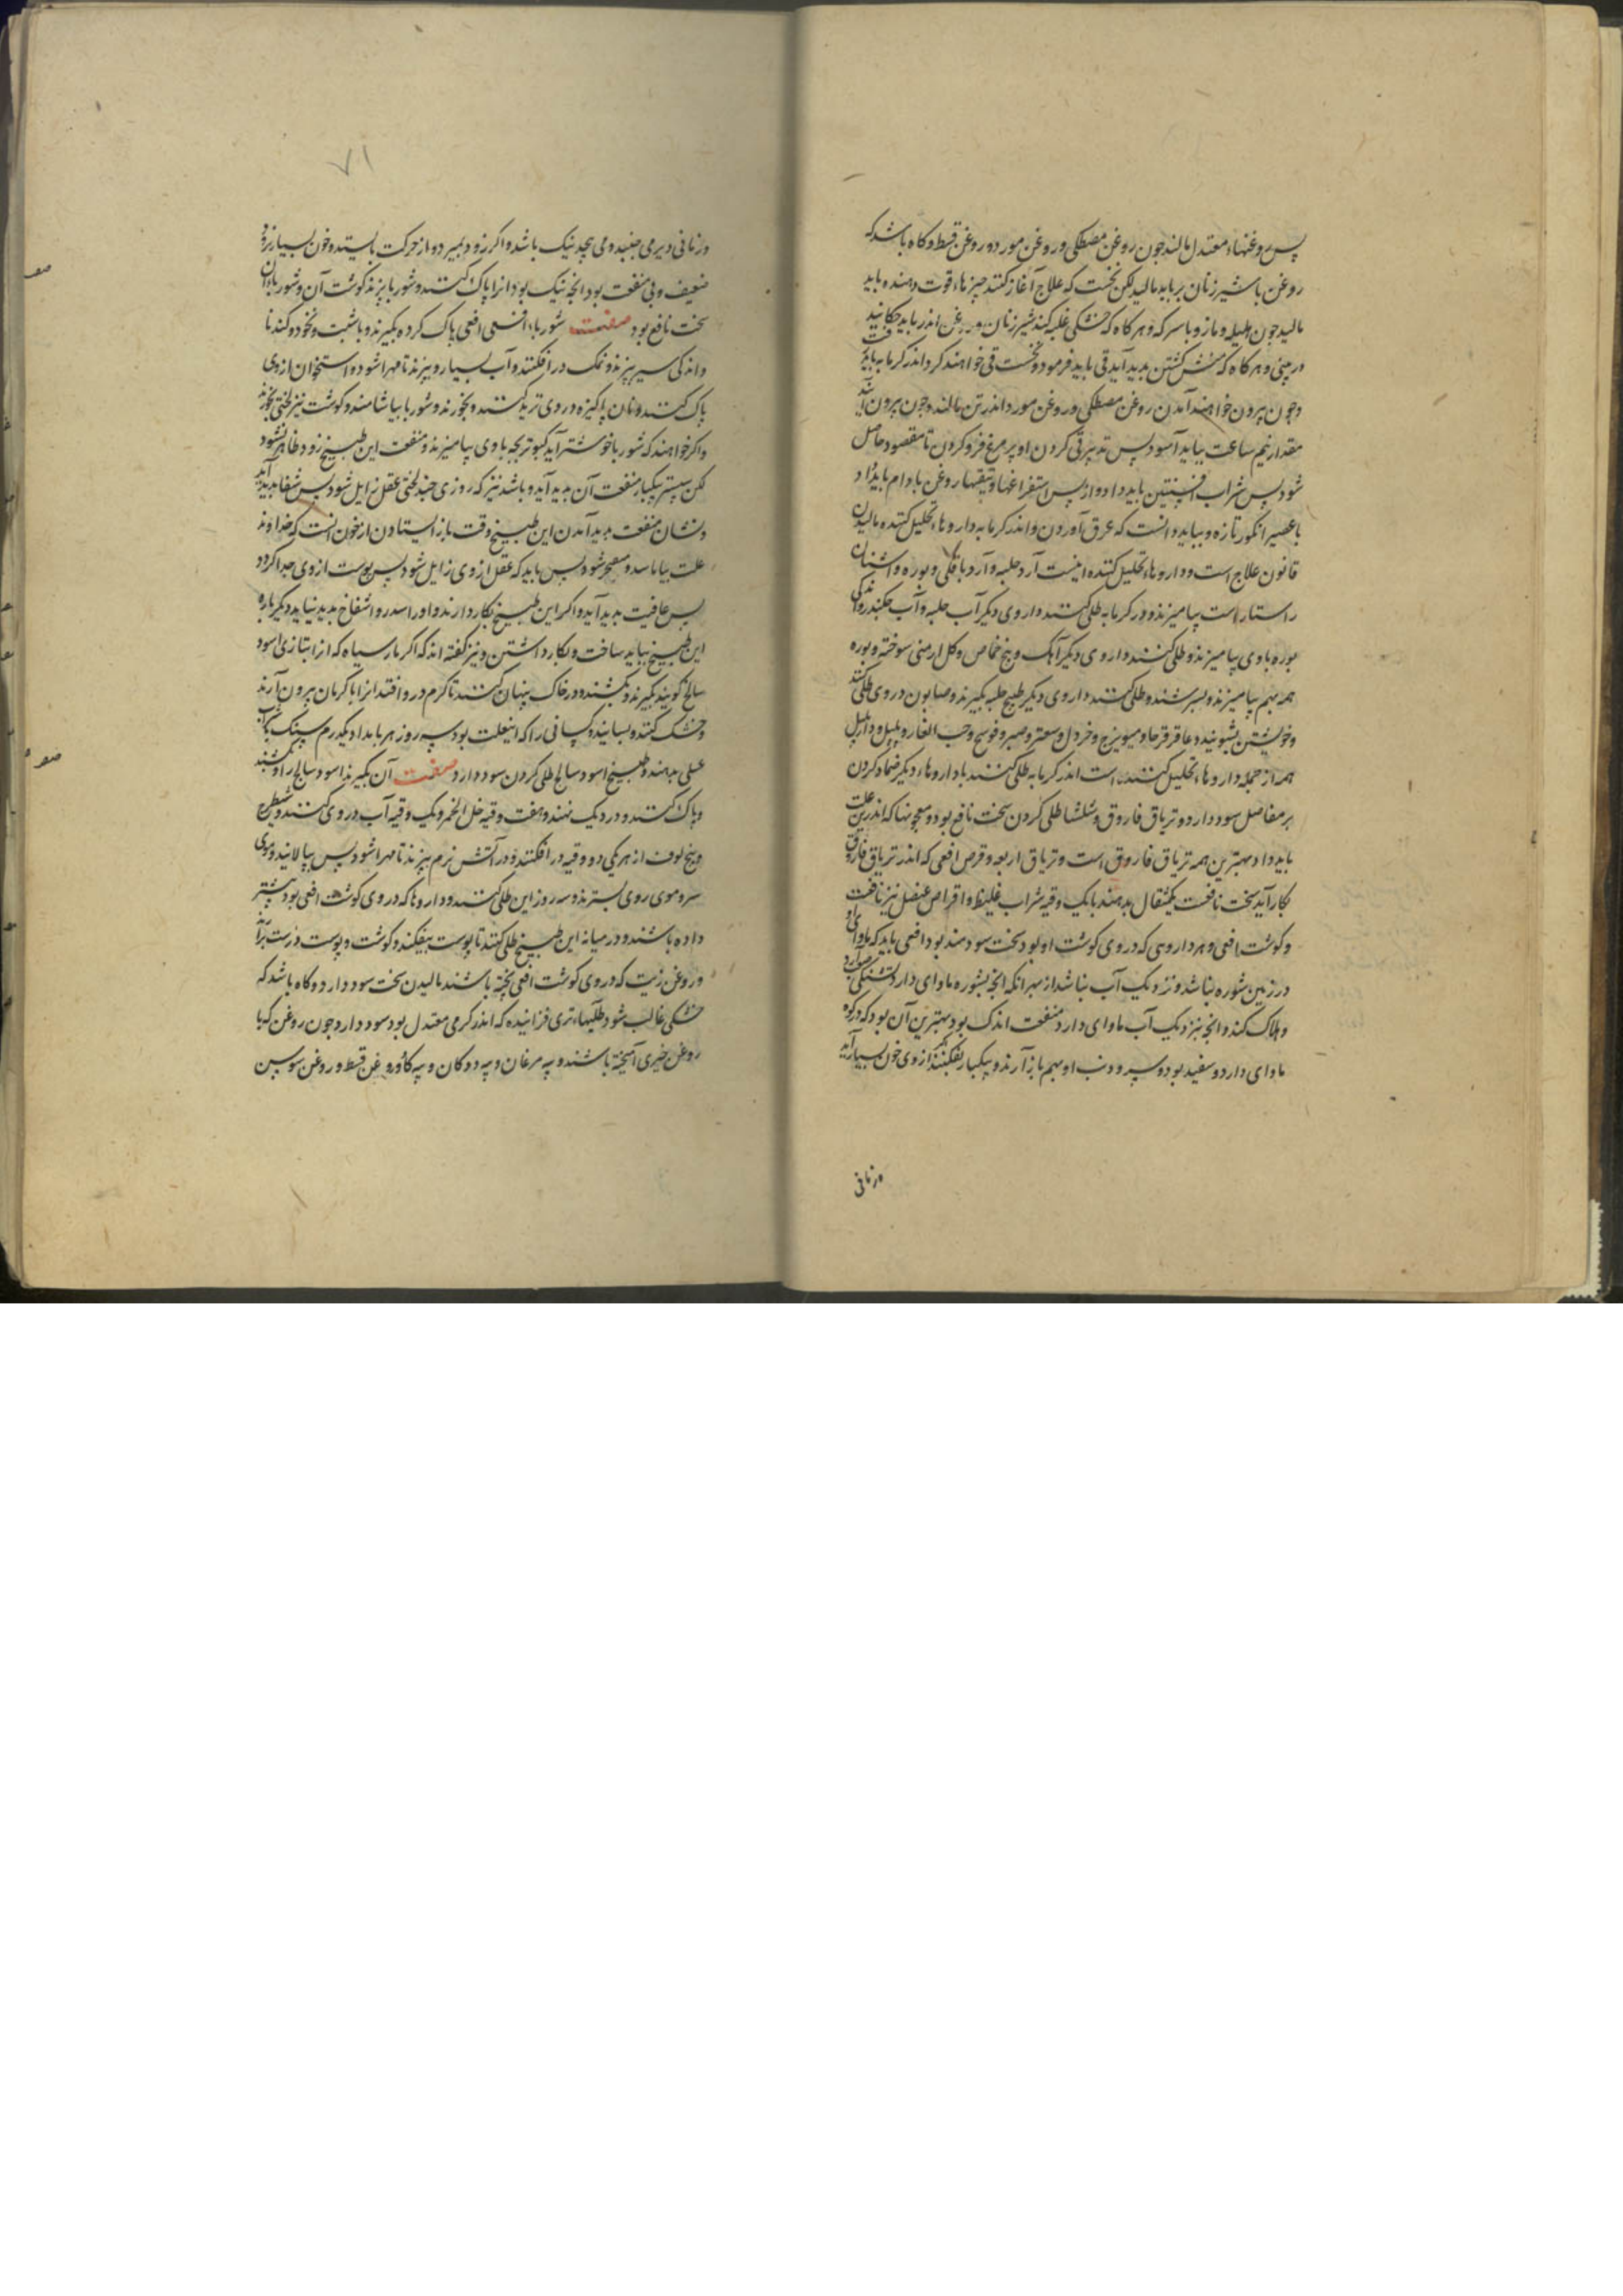 پس روغنهاء معتدل مالند جون روغن مصطکی و روغن مورد و روغن قسط و کاه باشد که
روغن با شیر زنان بر باید مالید لکن نخست که علاج آغاز کنند چیزهاء قوت دهنده باید
مالید جون هلیله و مازو با سرکه و هر کاه که خشکی غلبه کند شیر زنان و روغن اندر باید چکانید
در بینی و هر کاه که منش کشتن بدید آید قی باید فرمود و نخست قی خواهند کرد اندر کرمابه باید
وجون بیرون خواهند آمدن روغن مصطکی و روغن مورد اندر تن مالند وجون بیرون آیند
مقدار نیم ساعت بباید آسود پس تدبیر قی کردن او پر مرغ فرو کردن تا مقصود حاصل
شود پس شراب افسنتین باید داد و از پس استفراغها و تنقیتها روغن بادام باید داد
با عصیر انکور تازه و بباید دانست که عرق آوردن و اندر کرمابه داروهاء تحلیل کننده مالیدن
قانون علاج است و داروهاء تحلیل کننده اینست آرد حلبه و آرد باقلی و بوره و اشنان
راستاراست بیامیزند و در کرمابه طلی کنند داروی دیکر آب حلبه و آب جکندر و اندکی
بوره با وی بیامیزند و طلی کنند داروی دیکر آهک و بیخ خماض و کل ارمنی سوخته و بوره
همه بهم بیامیزند و بسرشند و طلی کنند داروی دیکر طبیخ حلبه بکیرند و صابون در وی طلی کنند
و خویشتن بشویند و عاقرقرحا و میویزج و خردل و سعتر و صبر و فوتنج و حب الغار و پلپل و دارپلپل
همه از جمله داروهاء تحلیل کننده است اندر کرمابه طلی کنند با داروهاء دیکر ضماد کردن
بر مفاصل سود دارد و تریاق فاروق و شلشا طلی کردن سخت نافع بود و معجونها که اندرین علت
باید داد بهترین همه تریاق فاروق است و تریاق اربعه و قرص افعی که اندر تریاق فاروق
بکار آید سخت نافعست یکمثقال بدهند با یک وقیه شراب غلیظ و اقراص عنصل نیز نافعست
و کوشت افعی و هر داروی که در وی کوشت او بود سخت سودمند بود افعی باید که ماوای او
در زمین شوره نباشد و نزدیک آب نباشد از بهر آنکه انجه بشوره ماوای دارد تشنکی آرد
و هلاک کند و انجه بنزدیک آب ماوای دارد منفعت اندک بود بهترین آن بود که در کوه
ماوای دارد و سفید بود و سر و دنب او بهم باز آرند و بیکبار بفکنند اگر از وی خون بسیار آید
و زمانی
و زمانی دیر می جنبد و می پیچد نیک باشد و اکر زود بمیرد و از حرکت بایستد و خون بسیار نرود
ضعیف و بی منفعت بود انجه نیک بود انرا پاک کنند و شوربا پزند کوشت آن و شورباء آن
سخت نافع بود صفت شورباء افعی افعی پاک کرده بکیرند و با شبت و نخود و کندنا
و اندکی سیر بپزند و نمک در افکنند و آب بسیار و بپزند تا مهرا شود و استخوان از وی
پاک کنند و نان پاکیزه در وی ترید کنند و بخورند و شوربا بیاشامند و کوشت نیز لختی بخورند
و اکر خواهند که شوربا خوشتر آید کبوتر بجه با وی بیامیزند و منفعت این طبیخ زود ظاهر نشود
لکن بیشتر بیکبار منفعت آن بدید آید و باشد نیز که روزی چند لختی عقل زایل شود پس شفا بدید آید
و نشان منفعت بدید آمدن این طبیخ وقت باز ایستادن از خوردن انست که خداوند
علت بیاماسد و متغیر شود پس باید که عقل از وی زایل شود پس پوست از وی جدا کردد
پس عافیت بدید آید و اکر این طبیخ بکار دارند و اورا سدر و انتفاخ بدید نیاید دیکر باره
این طبیخ بباید ساخت و بکار داشتن و نیز کفته اند که اکر مار سیاه که انرا بتازی اسود
سالخ کویند بکیرند و بکشند و در خاک پنهان کنند تا کرم در و افتد انرا با کرمان بیرون آرند
و خشک کنند و بسایند و کسانی را که اینعلت بود سه روز هر بامداد یکدرم سنک با آب
عسل بدهند و طبیخ اسود سالخ طلی کردن سود دارد صفت آن بکیرند اسود سالخ را و بکشند
و پاک کنند و در دیک نهند و هفت وقیه خل الخمر و یک وقیه آب در وی کنند و شیطرج
و بیخ لوف از هر یکی دو وقیه در افکنند و در آتش نرم بپزند تا مهرا شود پس بپالایند و موی
سر و موی روی بسترند و سه روز این طلی کنند و داروها که در وی کوشت افعی بود بیشتر
داده باشند و در میانه این طبیخ طلی کنند تا پوست بیفکند و کوشت و پوست درست برآرند
و روغن زیت که در وی کوشت افعی پخته باشند مالیدن سخت سود دارد و کاه باشد که
خشکی غالب شود طلیهاء تری فزاینده که اندر کرمی معتدل بود سود دارد جون روغن که با
روغن خیری آمیخته باشند و پیه مرغان و پیه ددوکان و پیه کاو و روغن قسط و روغن سوسن
۷۱
صفه
صفه